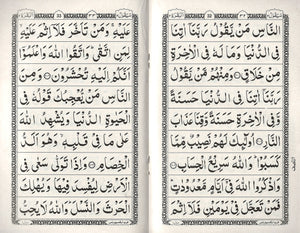 النَّاسِ مَنْ يَّقُوْلُ رَبَّنَآ اٰتِنَا
فِى الدُّنْيَا وَمَا لَهٗ فِى الْاٰخِرَةِ
مِنْ خَلَاقٍ وَمِنْهُمْ مَّنْ يَّقُوْلُ
رَبَّنَآ اٰتِنَا فِى الدُّنْيَا حَسَنَةً
وَّفِى الْاٰخِرَةِ حَسَنَةً وَّقِنَا عَذَابَ
النَّارِ اُولٰٓئِكَ لَهُمْ نَصِيْبٌ مِّمَّا
كَسَبُوْا وَاللّٰهُ سَرِيْعُ الْحِسَابِ
وَاذْكُرُوا اللّٰهَ فِىْٓ اَيَّامٍ مَّعْدُوْدٰتٍ
فَمَنْ تَعَجَّلَ فِىْ يَوْمَيْنِ فَلَآ اِثْمَ
عَلَيْهِ وَمَنْ تَاَخَّرَ فَلَآ اِثْمَ عَلَيْهِ
لِمَنِ اتَّقٰى وَاتَّقُوا اللّٰهَ وَاعْلَمُوْٓا
اَنَّكُمْ اِلَيْهِ تُحْشَرُوْنَ وَمِنَ
النَّاسِ مَنْ يُّعْجِبُكَ قَوْلُهٗ فِى
الْحَيٰوةِ الدُّنْيَا وَيُشْهِدُ اللّٰهَ
عَلٰى مَا فِىْ قَلْبِهٖ وَهُوَ اَلَدُّ
الْخِصَامِ وَاِذَا تَوَلّٰى سَعٰى فِى
الْاَرْضِ لِيُفْسِدَ فِيْهَا وَيُهْلِكَ
الْحَرْثَ وَالنَّسْلَ وَاللّٰهُ لَا يُحِبُّ